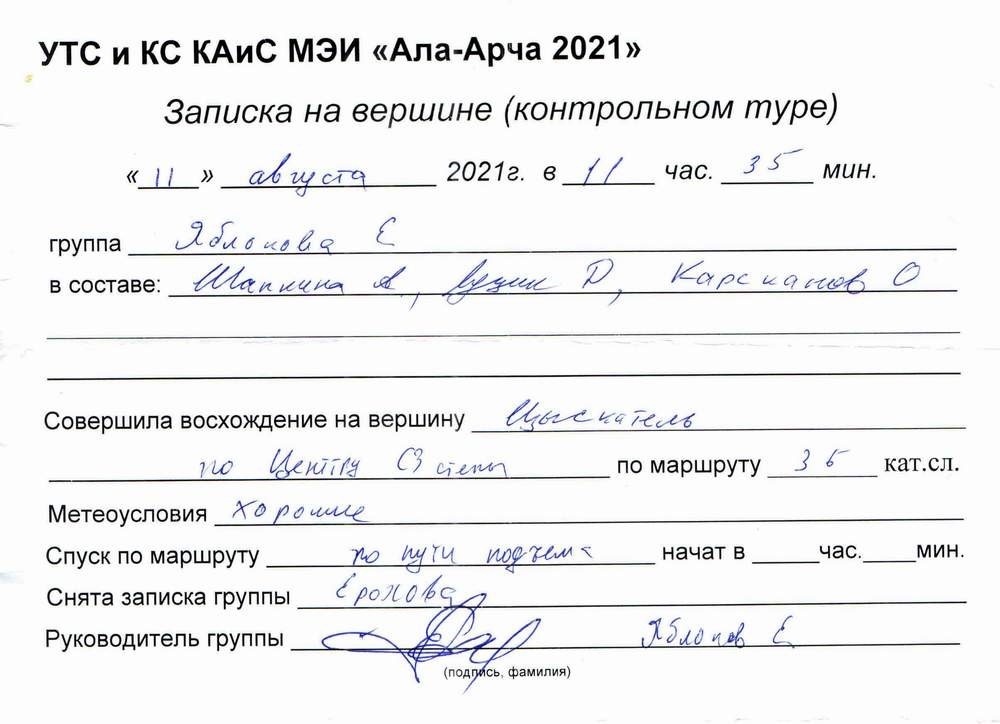 УТС и КС КАиС МЭИ «Ала-Арча 2021»
Записка на вершине (контрольном туре)
«11» августа 2021г. в 11 час. 35 мин.
группа Яблокова Е
в составе: Шапкина А, Д, Карсканов О
Совершила восхождение на вершину Изыскатель
по Центру СЗ стены по маршруту 3б кат.сл.
Метеоусловия хорошие
Спуск по маршруту по пути подъема начат в час. мин.
Снята записка группы Ерохова
Руководитель группы Яблоков Е
(подпись, фамилия)